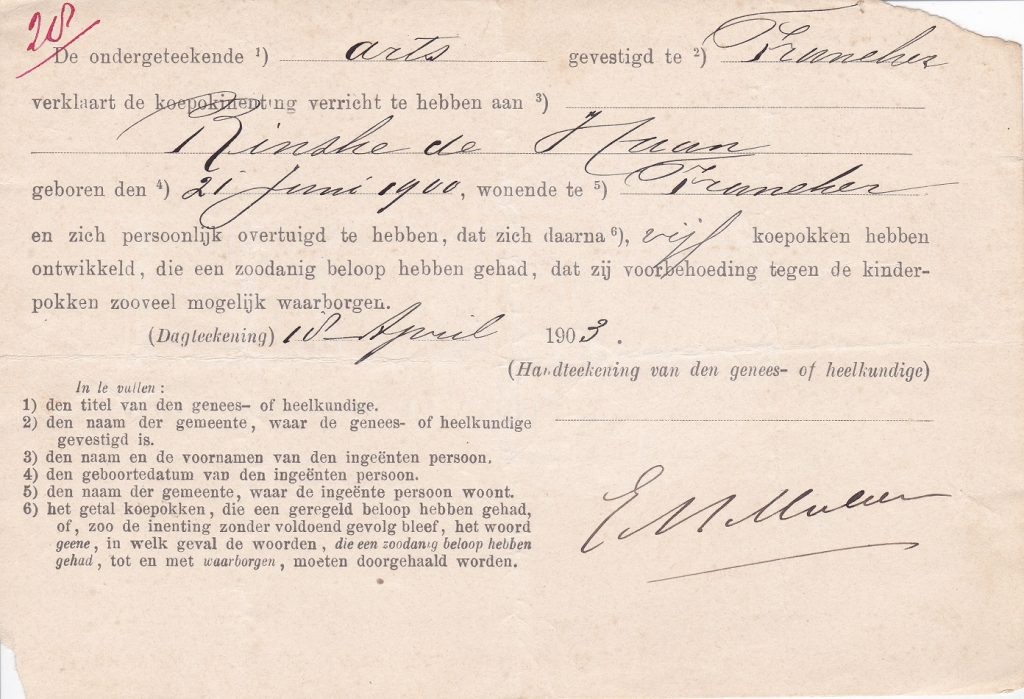 28
De ondergeteekende ¹) arts gevestigd te ²) Franeker
verklaart de koepokinenting verricht te hebben aan ³)
Rinske de Haan
geboren den ⁴) 21 Juni 1900, wonende te ⁵) Franeker
en zich persoonlijk overtuigd te hebben, dat zich daarna ⁶), vijf koepokken hebben
ontwikkeld, die een zoodanig beloop hebben gehad, dat zij voorbehoeding tegen de kinder-
pokken zooveel mogelijk waarborgen.
(Dagteekening) 18 April 1903.
(Handteekening van den genees- of heelkundige)
In te vullen:
1) den titel van den genees- of heelkundige.
2) den naam der gemeente, waar de genees- of heelkundige
gevestigd is.
3) den naam en de voornamen van den ingeënten persoon.
4) den geboortedatum van den ingeënten persoon.
5) den naam der gemeente, waar de ingeënte persoon woont.
6) het getal koepokken, die een geregeld beloop hebben gehad,
of, zoo de inenting zonder voldoend gevolg bleef, het woord
geene, in welk geval de woorden, die een zoodanig beloop hebben
gehad, tot en met waarborgen, moeten doorgehaald worden.